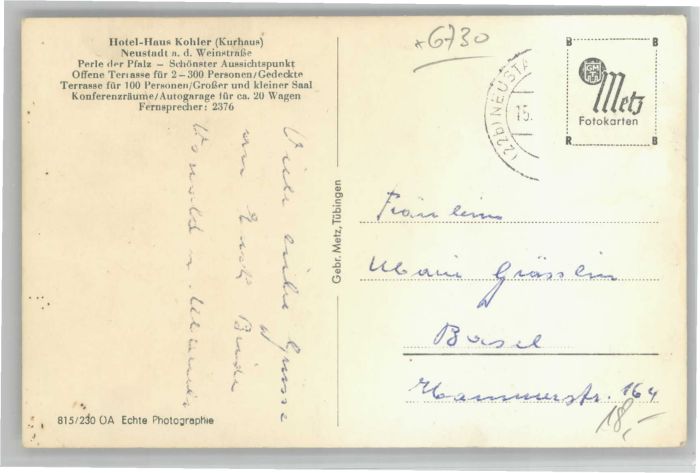 Hotel-Haus Kohler (Kurhaus)
Neustadt a. d. Weinstraße
Perle der Pfalz – Schönster Aussichtspunkt
Offene Terrasse für 2–300 Personen/Gedeckte
Terrasse für 100 Personen/Großer und kleiner Saal
Konferenzräume/Autogarage für ca. 20 Wagen
Fernsprecher: 2376
Viele liebe Grüsse
an Euch Beide
815/230 OA Echte Photographie
Gebr. Metz, Tübingen
*6730
(22b) NEUSTA
15.
B B
GMT
Metz
Fotokarten
R B
Fräulein
Marie Grässlin
Basel
Hammerstr. 164
18,-